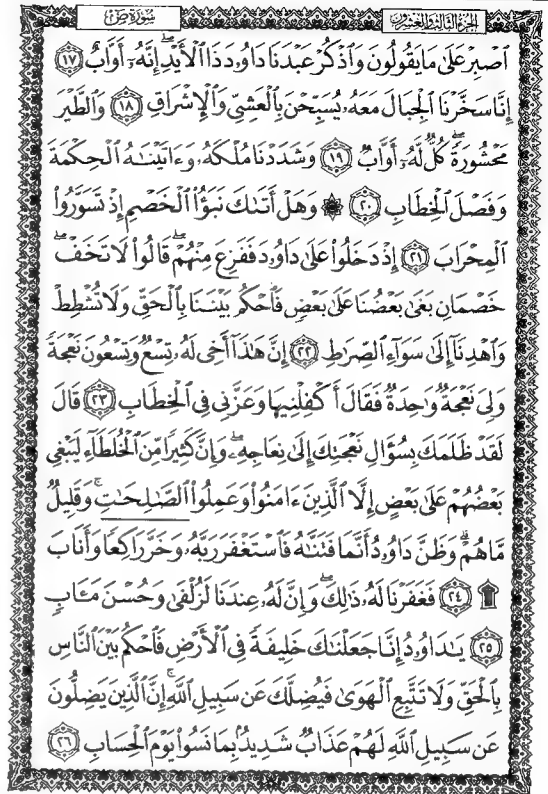 الجزء الثالث والعشرون
سورة ص
ٱصْبِرْ عَلَىٰ مَا يَقُولُونَ وَٱذْكُرْ عَبْدَنَا دَاوُۥدَ ذَا ٱلْأَيْدِ ۖ إِنَّهُۥٓ أَوَّابٌ ١٧
إِنَّا سَخَّرْنَا ٱلْجِبَالَ مَعَهُۥ يُسَبِّحْنَ بِٱلْعَشِىِّ وَٱلْإِشْرَاقِ ١٨ وَٱلطَّيْرَ
مَحْشُورَةً ۖ كُلٌّ لَّهُۥٓ أَوَّابٌ ١٩ وَشَدَدْنَا مُلْكَهُۥ وَءَاتَيْنَٰهُ ٱلْحِكْمَةَ
وَفَصْلَ ٱلْخِطَابِ ٢٠ ۞ وَهَلْ أَتَىٰكَ نَبَؤُا۟ ٱلْخَصْمِ إِذْ تَسَوَّرُوا۟
ٱلْمِحْرَابَ ٢١ إِذْ دَخَلُوا۟ عَلَىٰ دَاوُۥدَ فَفَزِعَ مِنْهُمْ ۖ قَالُوا۟ لَا تَخَفْ ۖ
خَصْمَانِ بَغَىٰ بَعْضُنَا عَلَىٰ بَعْضٍ فَٱحْكُم بَيْنَنَا بِٱلْحَقِّ وَلَا تُشْطِطْ
وَٱهْدِنَآ إِلَىٰ سَوَآءِ ٱلصِّرَٰطِ ٢٢ إِنَّ هَٰذَآ أَخِى لَهُۥ تِسْعٌ وَتِسْعُونَ نَعْجَةً
وَلِىَ نَعْجَةٌ وَٰحِدَةٌ فَقَالَ أَكْفِلْنِيهَا وَعَزَّنِى فِى ٱلْخِطَابِ ٢٣ قَالَ
لَقَدْ ظَلَمَكَ بِسُؤَالِ نَعْجَتِكَ إِلَىٰ نِعَاجِهِۦ ۖ وَإِنَّ كَثِيرًا مِّنَ ٱلْخُلَطَآءِ لَيَبْغِى
بَعْضُهُمْ عَلَىٰ بَعْضٍ إِلَّا ٱلَّذِينَ ءَامَنُوا۟ وَعَمِلُوا۟ ٱلصَّٰلِحَٰتِ وَقَلِيلٌ
مَّا هُمْ ۗ وَظَنَّ دَاوُۥدُ أَنَّمَا فَتَنَّٰهُ فَٱسْتَغْفَرَ رَبَّهُۥ وَخَرَّ رَاكِعًا وَأَنَابَ
۩ ٢٤ فَغَفَرْنَا لَهُۥ ذَٰلِكَ ۖ وَإِنَّ لَهُۥ عِندَنَا لَزُلْفَىٰ وَحُسْنَ مَـَٔابٍ
٢٥ يَٰدَاوُۥدُ إِنَّا جَعَلْنَٰكَ خَلِيفَةً فِى ٱلْأَرْضِ فَٱحْكُم بَيْنَ ٱلنَّاسِ
بِٱلْحَقِّ وَلَا تَتَّبِعِ ٱلْهَوَىٰ فَيُضِلَّكَ عَن سَبِيلِ ٱللَّهِ ۚ إِنَّ ٱلَّذِينَ يَضِلُّونَ
عَن سَبِيلِ ٱللَّهِ لَهُمْ عَذَابٌ شَدِيدٌۢ بِمَا نَسُوا۟ يَوْمَ ٱلْحِسَابِ ٢٦